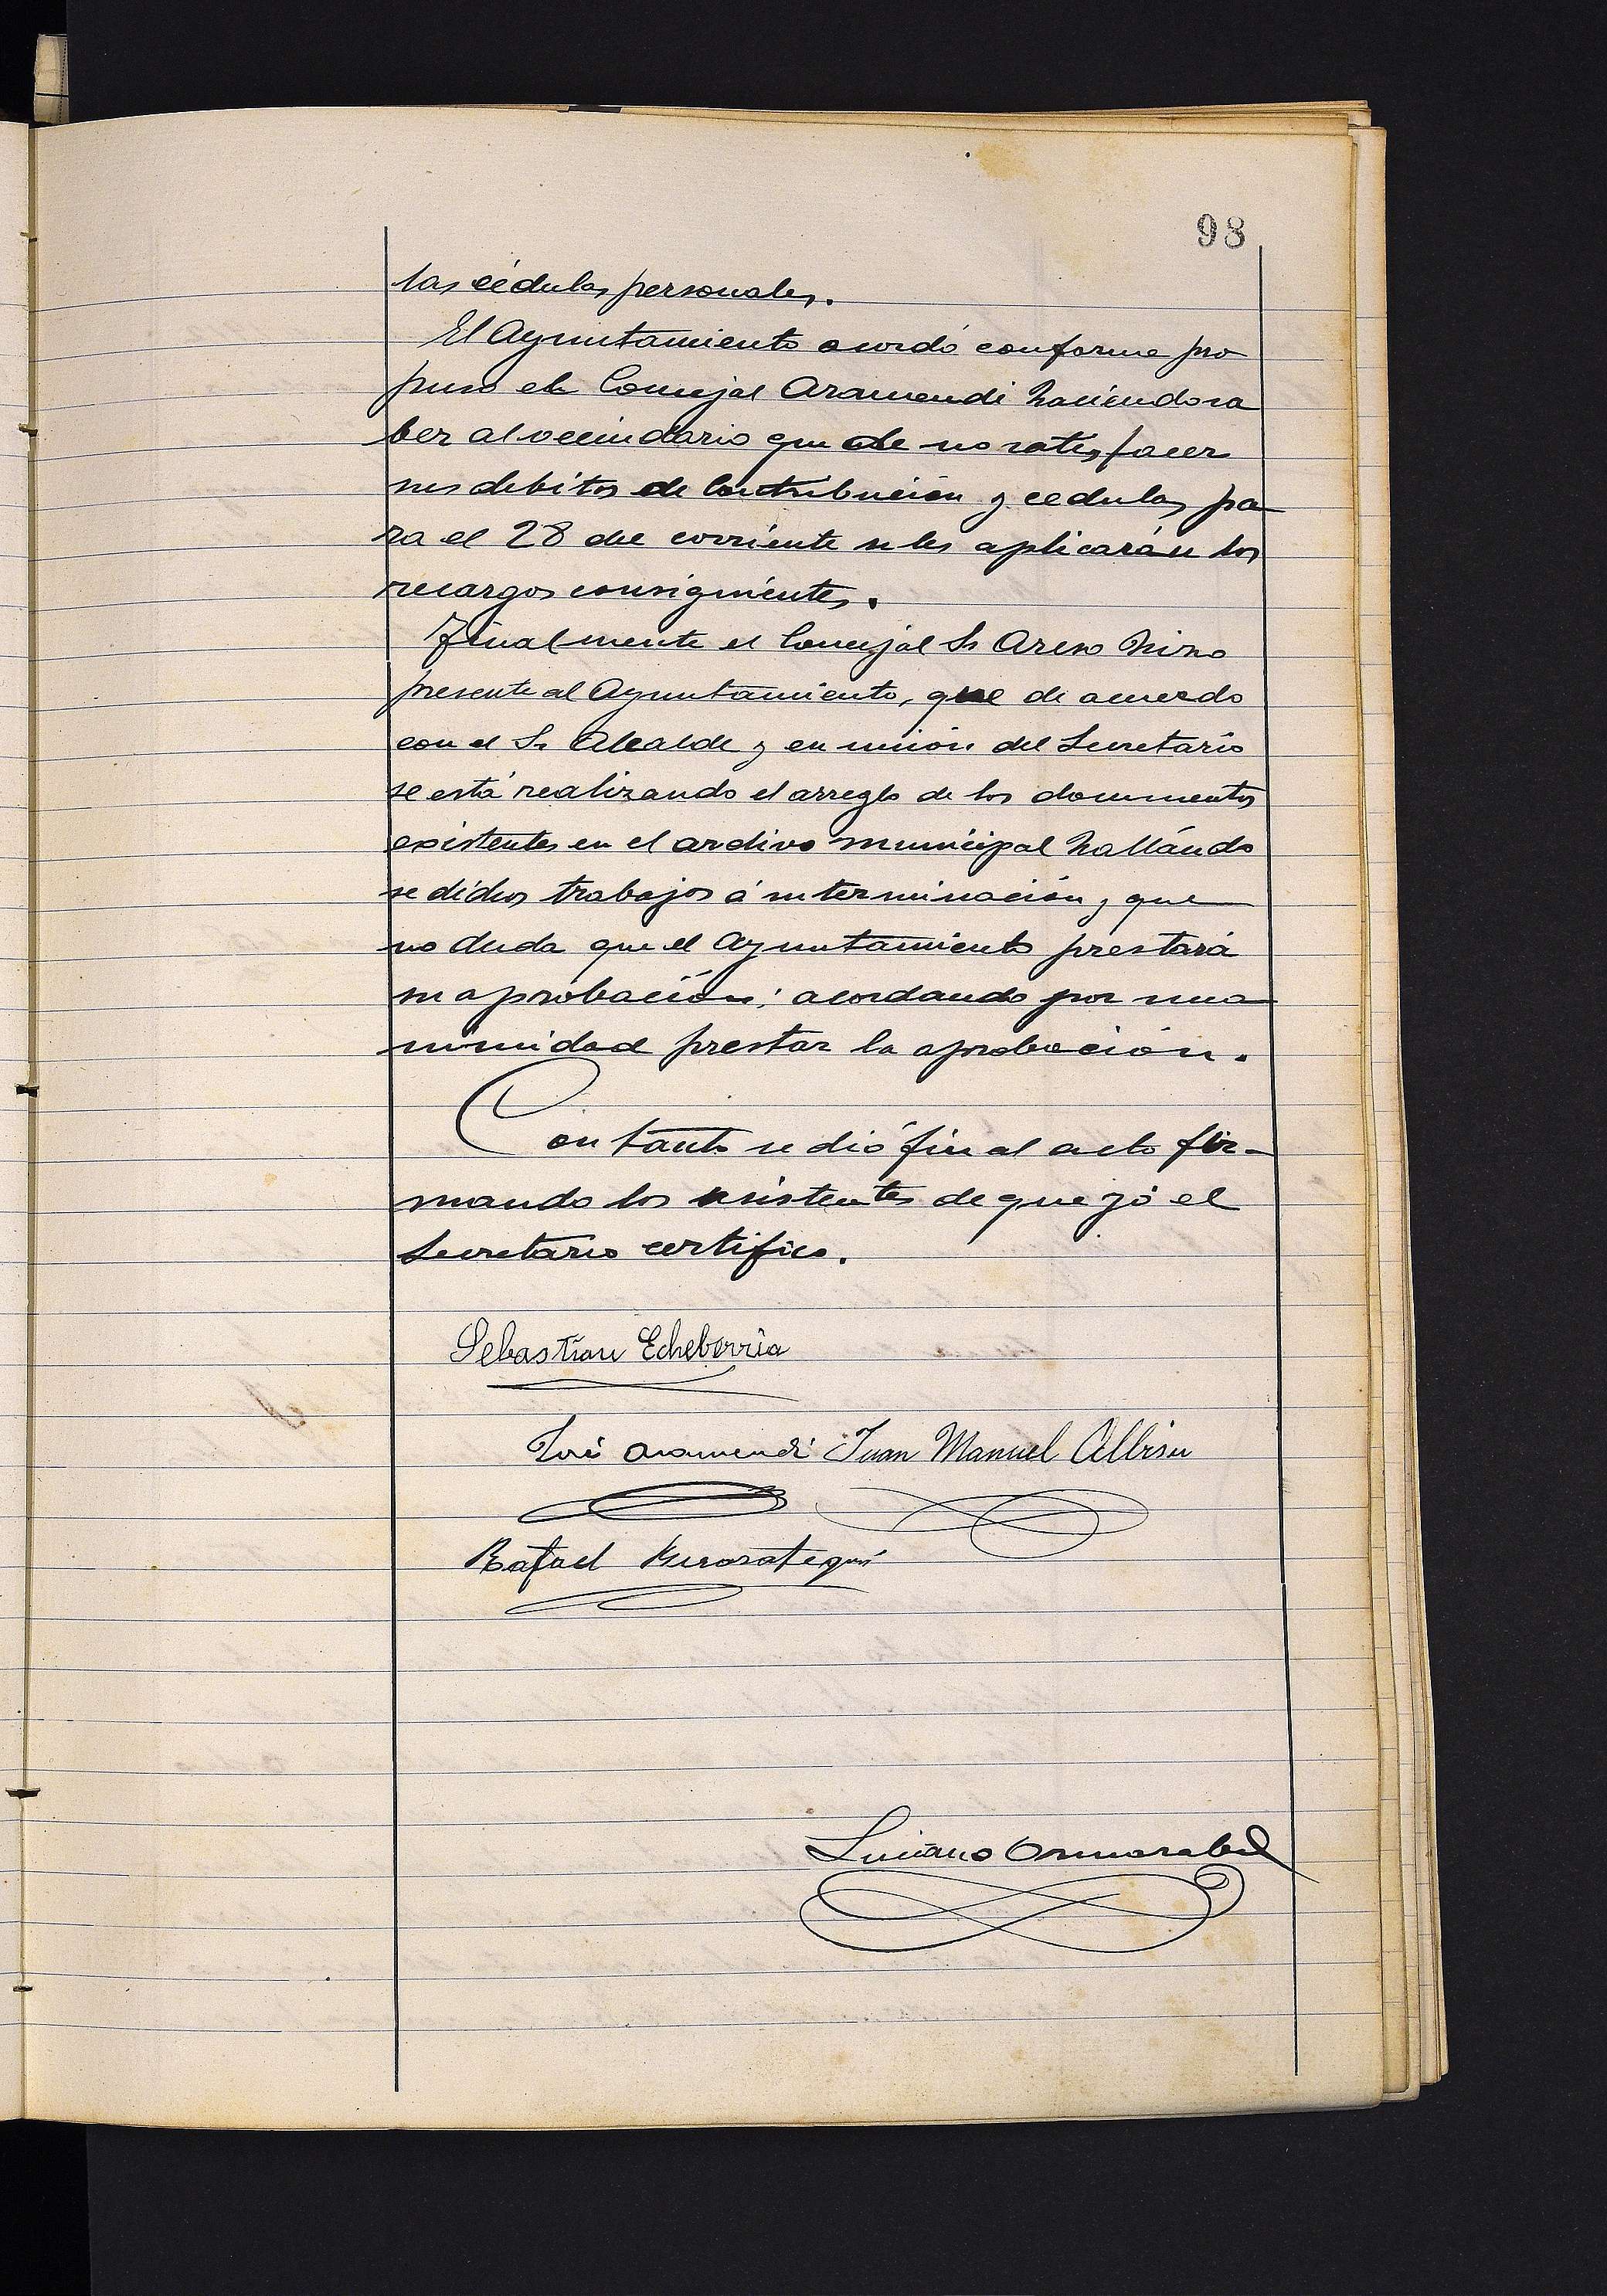 98
las cédulas personales.
El Ayuntamiento acordó conforme pro
puso el Concejal Aramendi haciendo sa
ber al vecindario que de no satisfacer
sus debitos de Contribución y cedulas pa
ra el 28 del corriente se les aplicarán los
recargos consiguientes.
Finalmente el Concejal Sr Areso hizo
presente al Ayuntamiento, que de acuerdo
con el Sr Alcalde y en unión del Secretario
se está realizando el arreglo de los documentos
existentes en el archivo municipal hallándo
se dichos trabajos á su terminación y que
no duda que el Ayuntamiento prestará
su aprobación; acordando por una
nimidad prestar la aprobación.
Con tanto se dió fin al acto fir-
mando los asistentes de que yó el
Secretario certifico.
Sebastian Echeberria
José Aramendi Juan Manuel Albisu
Rafael
Luciano